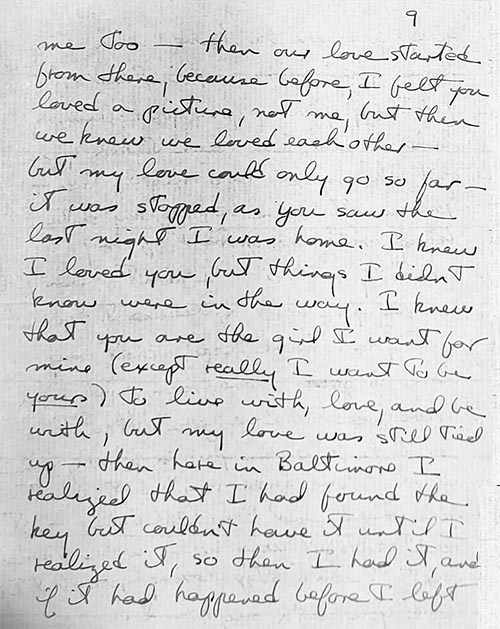 9
me too — then our love started
from there, because before, I felt you
loved a picture, not me, but then
we knew we loved each other —
but my love could only go so far —
it was stopped, as you saw the
last night I was home. I knew
I loved you, but things I didn't
know were in the way. I knew
that you are the girl I want for
mine (except really I want to be
yours) to live with, love, and be
with, but my love was still tied
up — then here in Baltimore I
realized that I had found the
key but couldn't have it until I
realized it, so then I had it and
if it had happened before I left